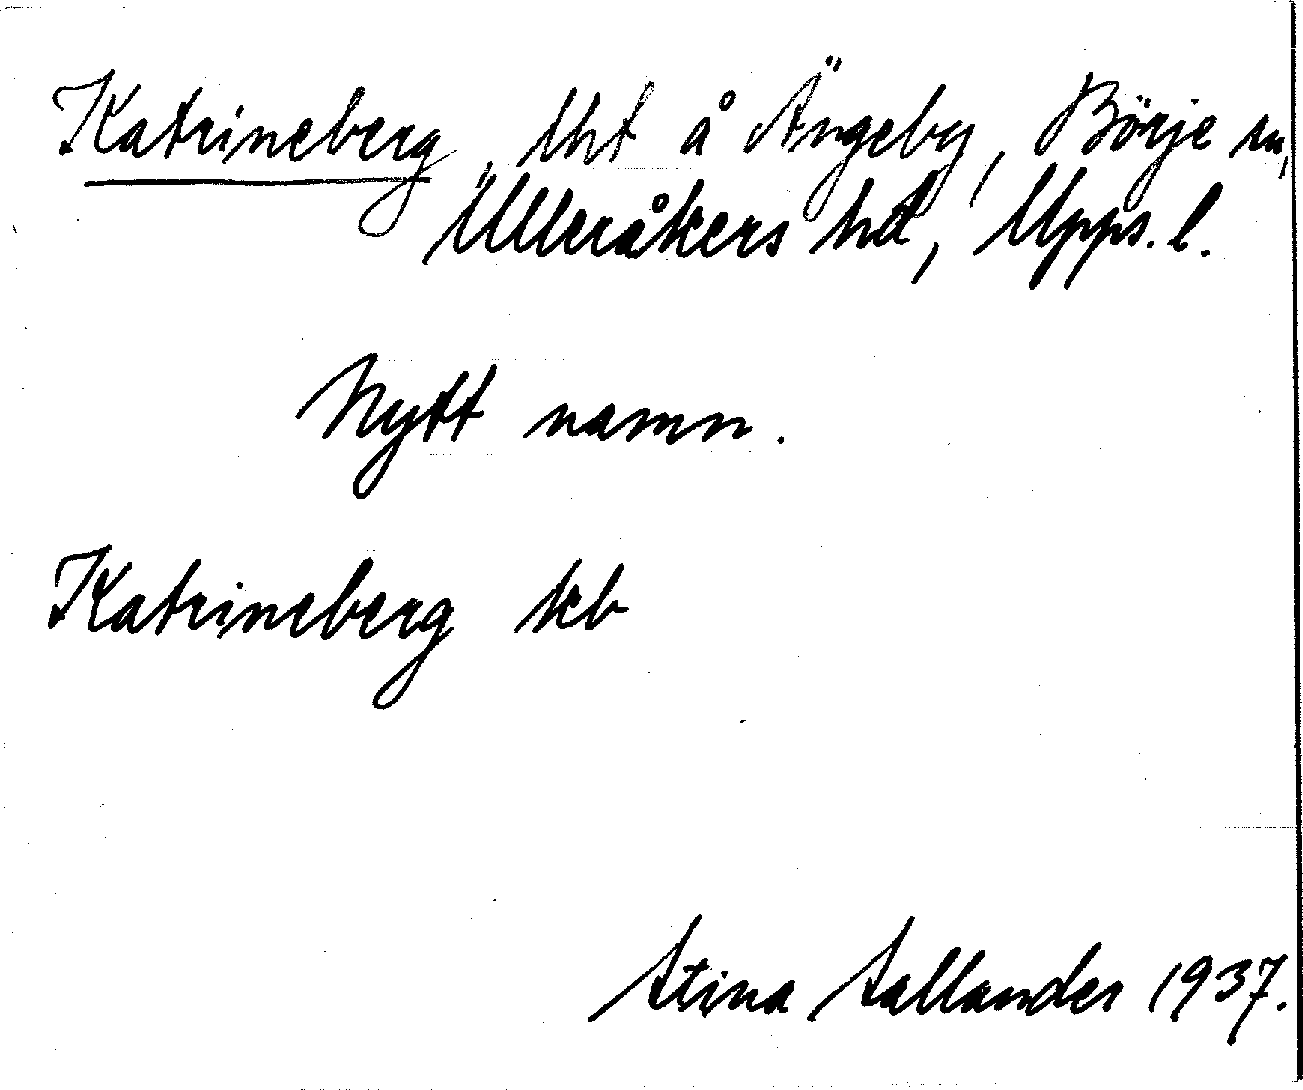 Katrineberg, lht å Ängeby, Börje sn,
Ulleråkers hd, Upps. l.
Nytt namn.
Katrineberg kb
Stina Sallander 1937.